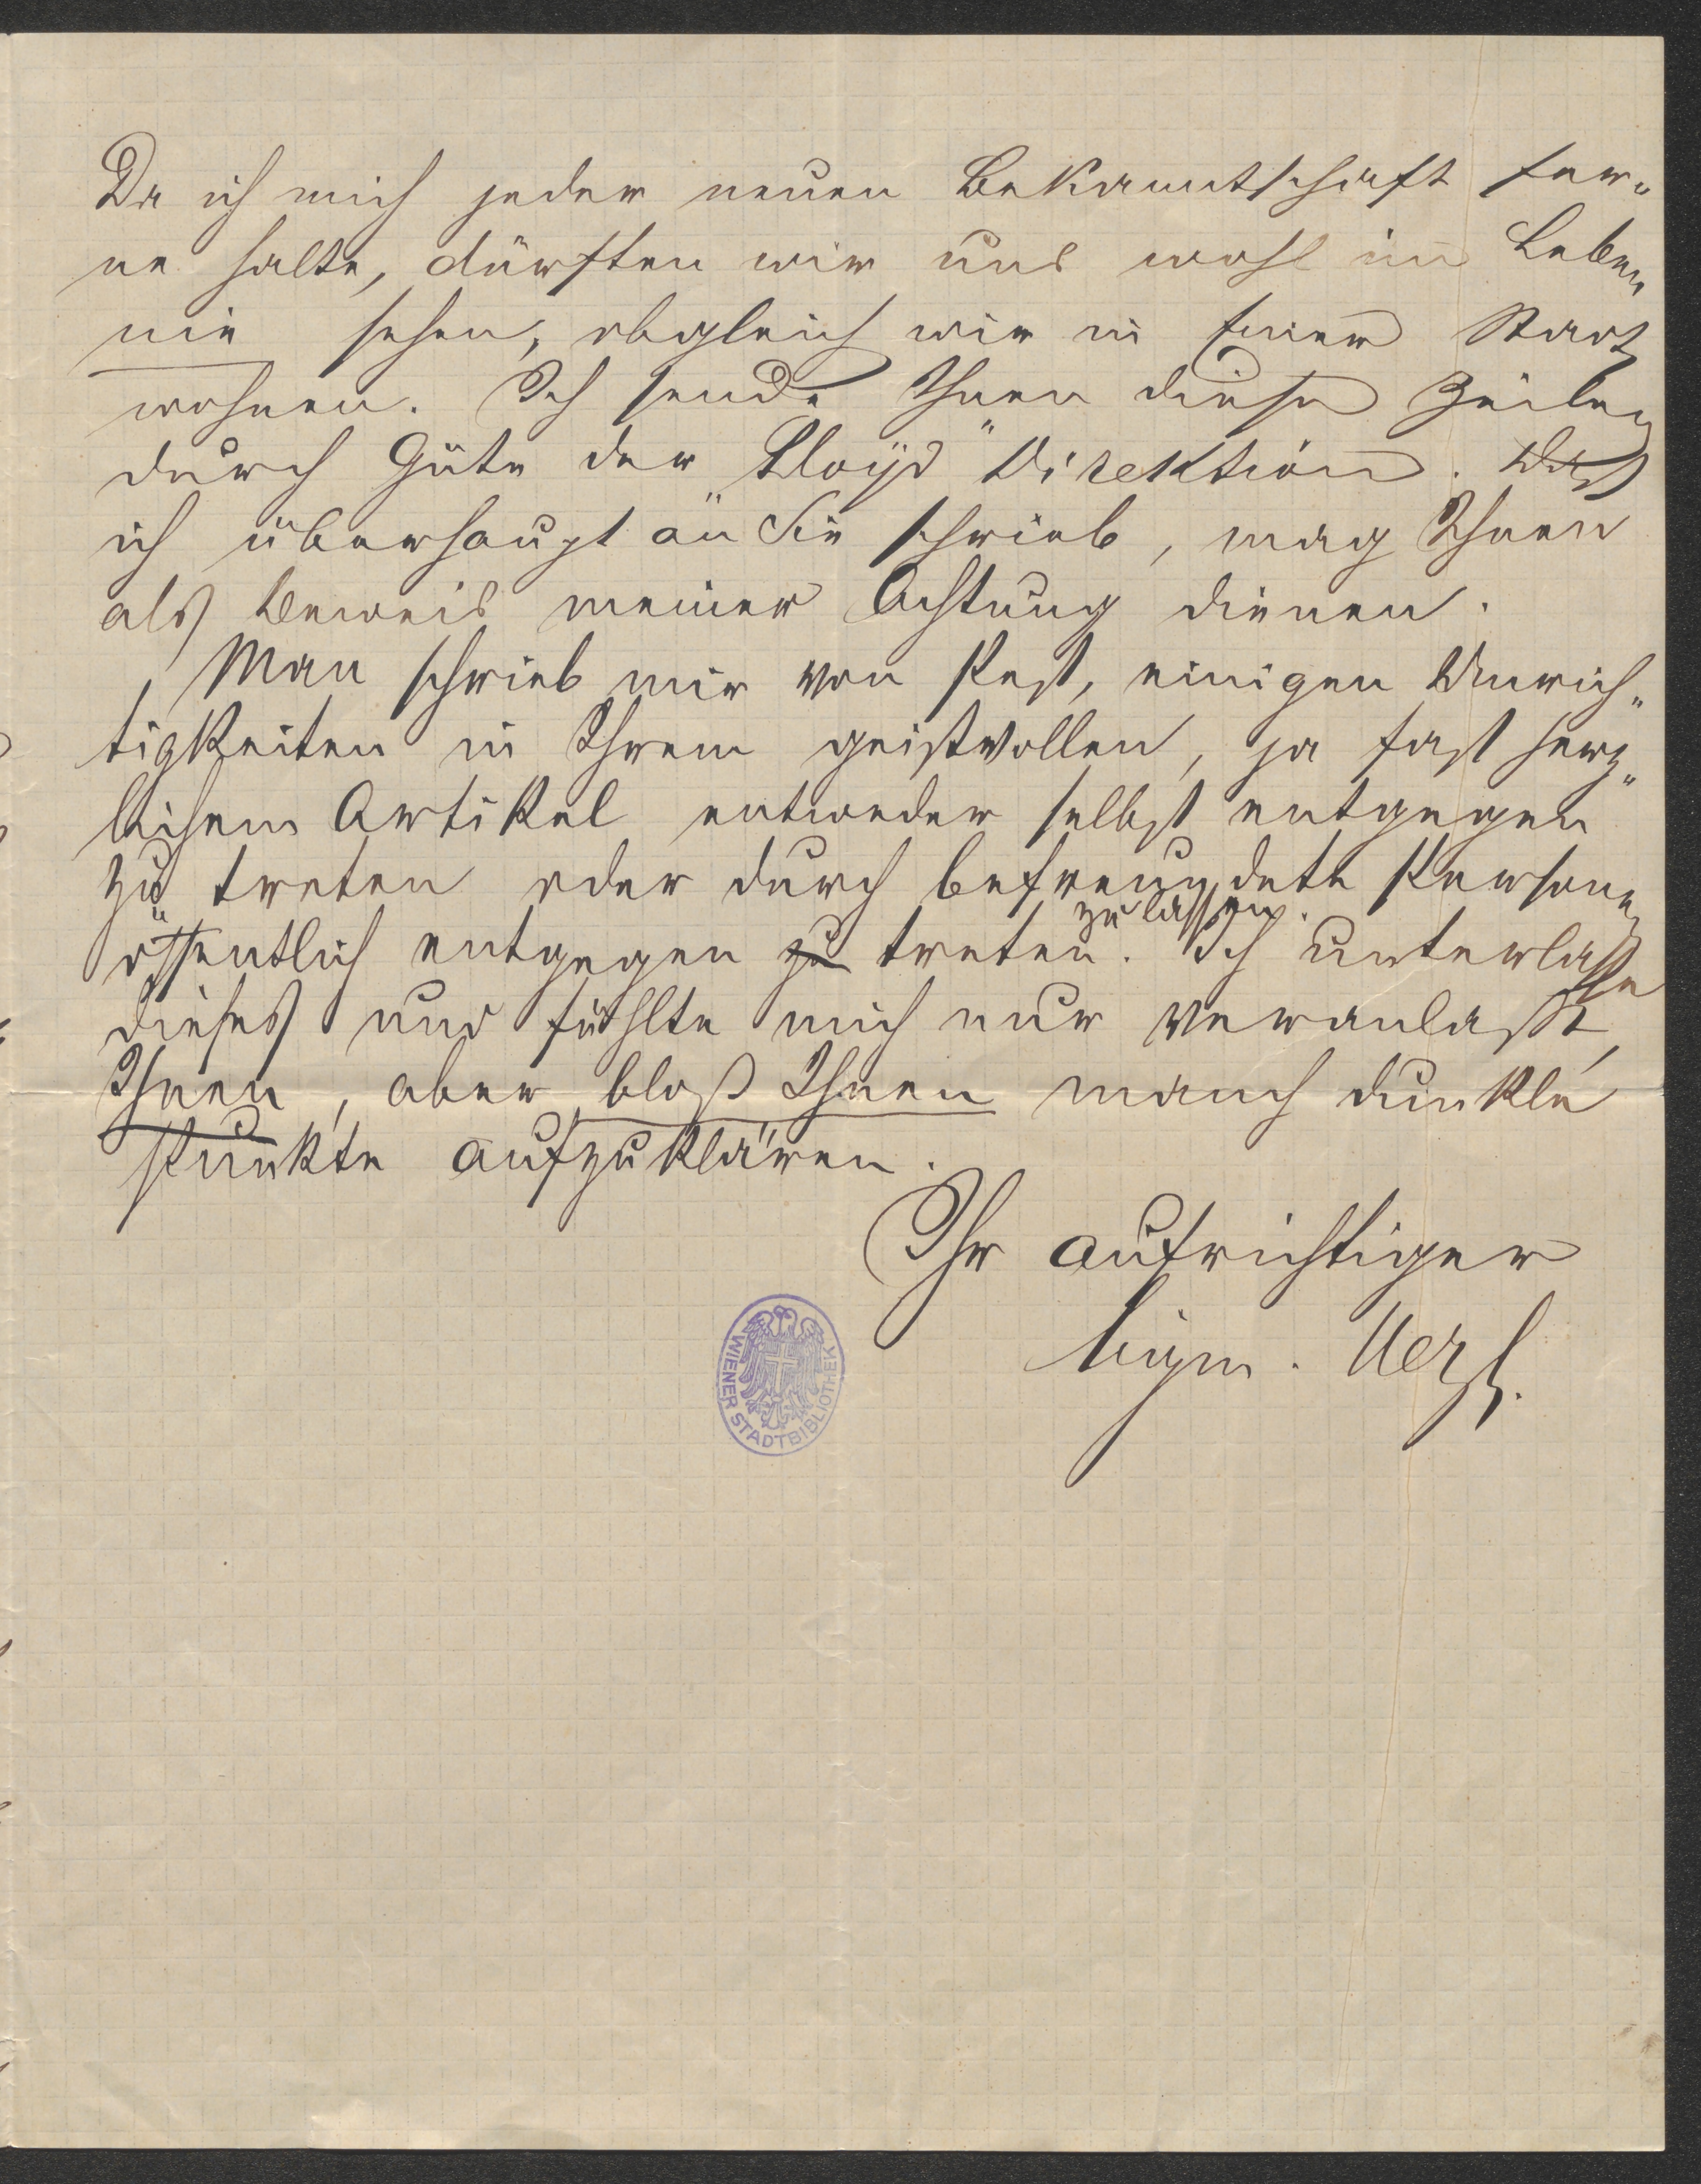 Da ich mich jeder neuen Bekanntschaft fer„
ne halte, dürften wir uns wohl im Leben
nie sehen, obgleich wir in Einer Stadt
wohnen. Ich sende Ihnen diese Zeilen
durch Güte der „Lloyd" Direktion. Daß
ich überhaupt an Sie schrieb, mag Ihnen
als Beweis meiner Achtung dienen.
Man schrieb mir von Pest, einigen Unrich„
tigkeiten in Ihrem geistvollen, ja fast herz„
lichem Artikel entweder selbst entgegen
zu treten oder durch befreundete Personen
zu lassen.
öffentlich entgegen zu treten. Ich unterlasse
dieses und fühlte mich nur veranlaßt,
Ihnen, aber bloß Ihnen manch dunkle
Punkte aufzuklären.
Ihr aufrichtiger
Sigm.
WIENER STADTBIBLIOTHEK